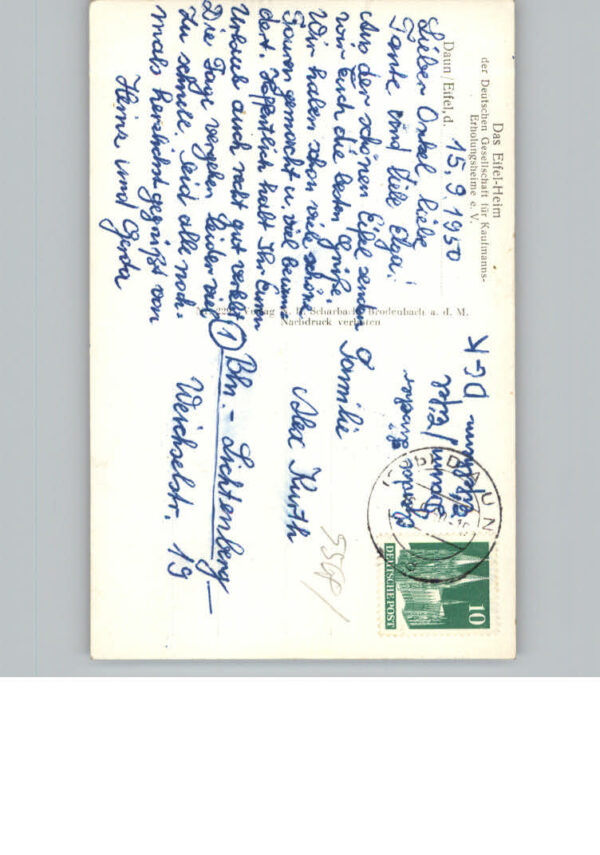 Das Eifel-Heim
der Deutschen Gesellschaft für Kaufmanns-
Erholungsheime e. V.
Daun/Eifel, d. 15.9.1950
Lieber Onkel, liebe
Tante und liebe Olga!
Aus der schönen Eifel senden
wir Euch die besten Grüße.
Wir haben schon viel schöne
Touren gemacht u. viel bewun-
dert. Hoffentlich habt Ihr Euren
Urlaub auch recht gut verlebt
Die Tage vergehen leider viel
zu schnell. Seid alle noch-
mals herzlichst gegrüßt von
Heinz und Gerta
Verlag Scharbach Brodenbach a. d. M.
Nachdruck verboten
Familie
Alex Kurth
1 Bln.- Lichtenberg
Weichselstr. 19
Daun/Eifel
DAUN
10
DEUTSCHE POST